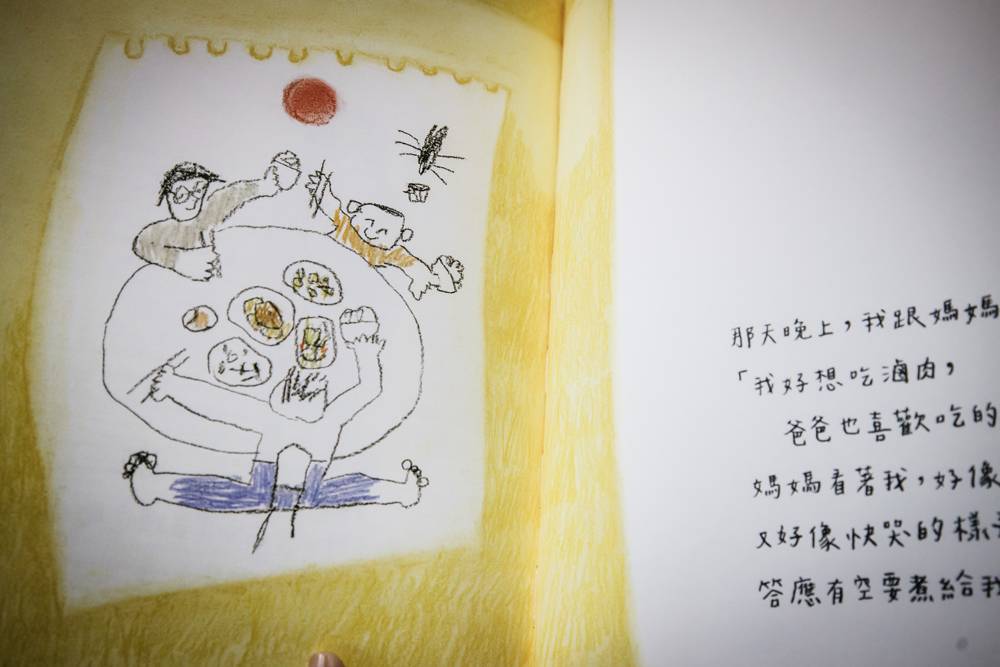 那天晚上，我跟媽媽
「我好想吃滷肉，
爸爸也喜歡吃的
媽媽看著我，好像
又好像快哭的樣
答應有空要煮給我